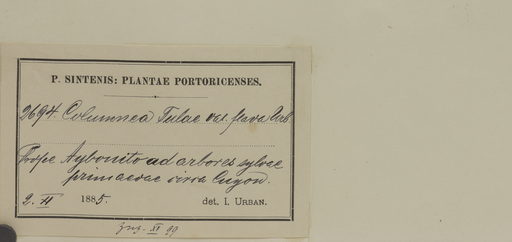 P. SINTENIS: PLANTAE PORTORICENSES.
2694. Columnea Tulae var. flava Urb
Prope Aybonito ad arbores sylvae
primaevae circa
2. II 1885. det. I. URBAN.
XI 99